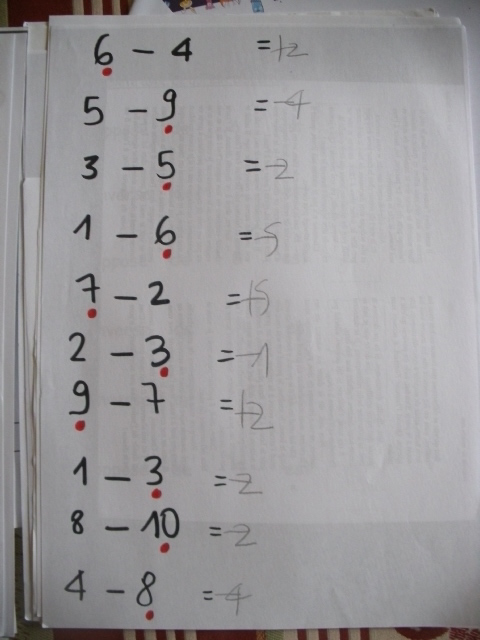 6 - 4 = +2
5 - 9 = -4
3 - 5 = -2
1 - 6 = -5
7 - 2 = +5
2 - 3 = -1
9 - 7 = +2
1 - 3 = -2
8 - 10 = -2
4 - 8 = -4